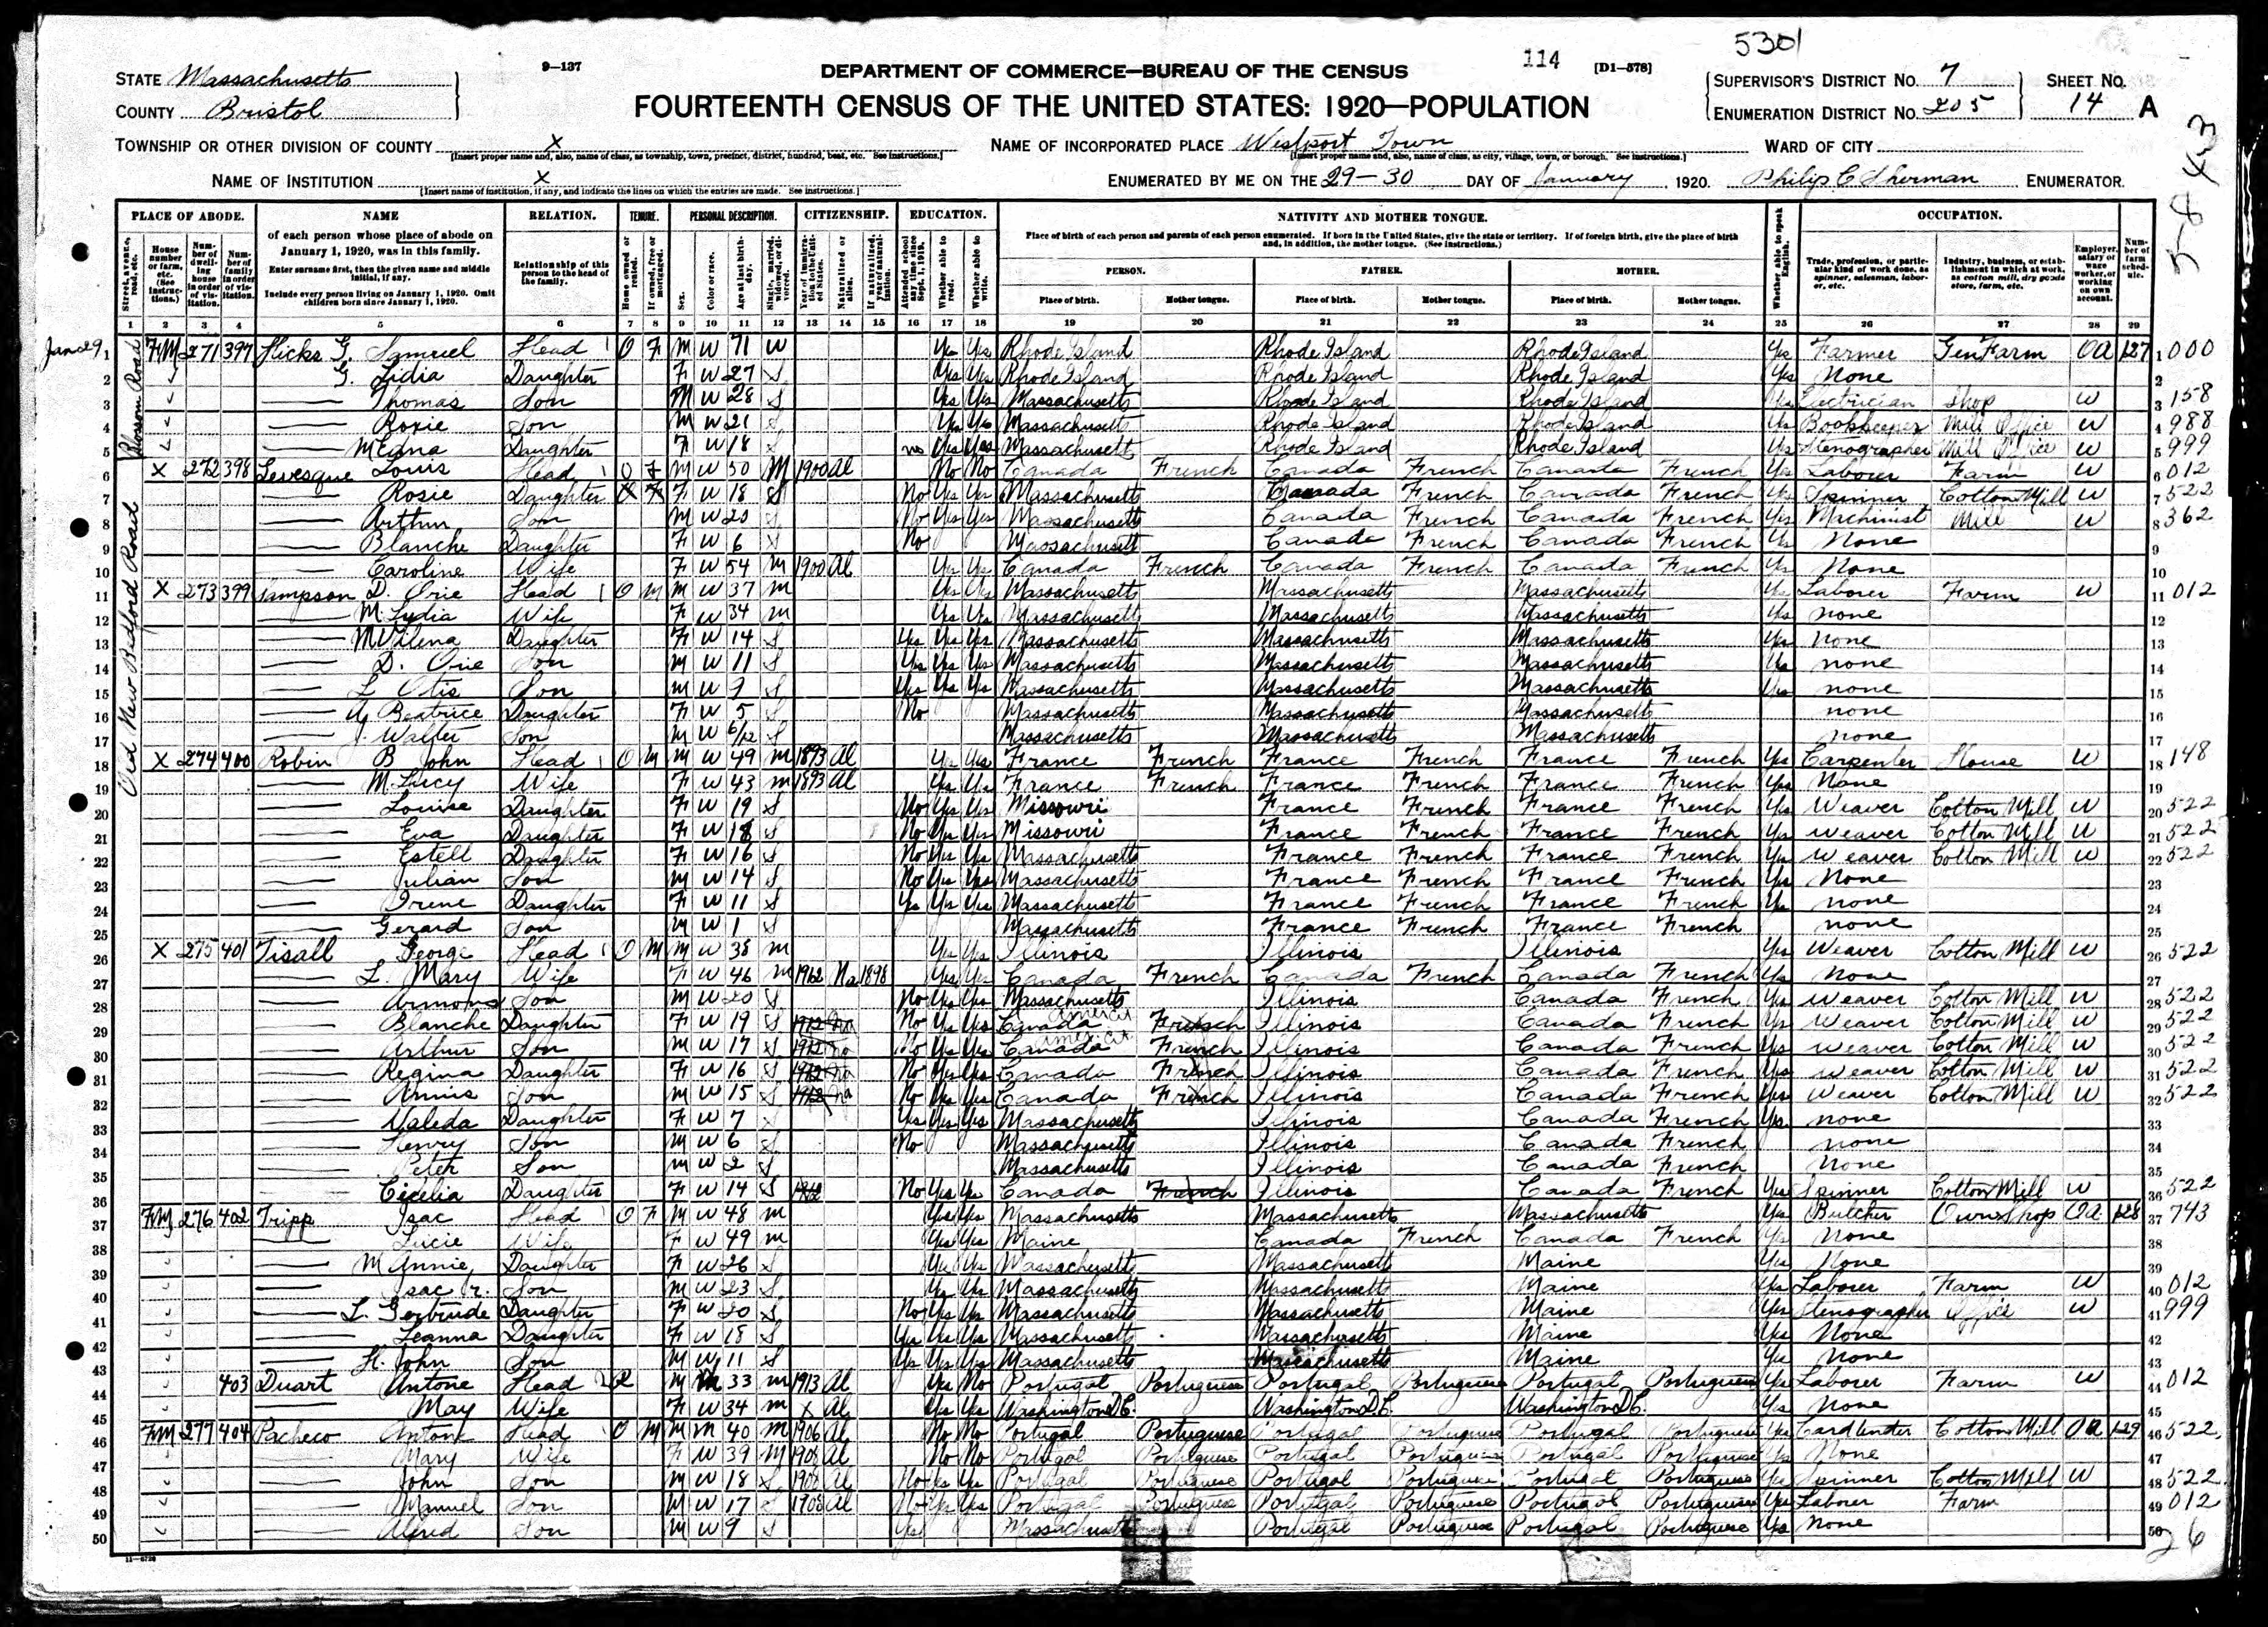 5301
9—137
DEPARTMENT OF COMMERCE—BUREAU OF THE CENSUS
114 [D1—578]
STATE Massachusetts
COUNTY Bristol
FOURTEENTH CENSUS OF THE UNITED STATES: 1920—POPULATION
SUPERVISOR'S DISTRICT No. 7 SHEET No.
ENUMERATION DISTRICT No. 205 14 A
TOWNSHIP OR OTHER DIVISION OF COUNTY X
[Insert proper name and, also, name of class, as township, town, precinct, district, hundred, beat, etc. See instructions.]
NAME OF INCORPORATED PLACE Westport Town
[Insert proper name and, also, name of class, as city, village, town, or borough. See instructions.]
WARD OF CITY
NAME OF INSTITUTION X
[Insert name of institution, if any, and indicate the lines on which the entries are made. See instructions.]
ENUMERATED BY ME ON THE 29-30 DAY OF January, 1920. Philip C Sherman ENUMERATOR.
PLACE OF ABODE. NAME RELATION. TENURE. PERSONAL DESCRIPTION. CITIZENSHIP. EDUCATION. NATIVITY AND MOTHER TONGUE. OCCUPATION.
of each person whose place of abode on January 1, 1920, was in this family.
Enter surname first, then the given name and middle initial, if any.
Include every person living on January 1, 1920. Omit children born since January 1, 1920.
Relationship of this person to the head of the family.
Place of birth of each person and parents of each person enumerated. If born in the United States, give the state or territory. If of foreign birth, give the place of birth and, in addition, the mother tongue. (See instructions.)
PERSON. FATHER. MOTHER.
Place of birth. Mother tongue. Place of birth. Mother tongue. Place of birth. Mother tongue.
1 2 3 4 5 6 7 8 9 10 11 12 13 14 15 16 17 18 19 20 21 22 23 24 25 26 27 28 29
Blossom Road
Old New Bedford Road
1 FM 271 397 Hicks G. Samuel Head O F M W 71 W Yes Yes Rhode Island Rhode Island Rhode Island Yes Farmer Gen Farm OA 127 1 000
2 G. Lidia Daughter F W 27 S Yes Yes Rhode Island Rhode Island Rhode Island Yes None 2
3 Thomas Son M W 28 S Yes Yes Massachusetts Rhode Island Rhode Island Yes Electrician Shop W 3 158
4 Son M W 21 S Yes Yes Massachusetts Rhode Island Rhode Island Yes Bookkeeper Mill Office W 4 988
5 M Edna Daughter F W 18 S no Yes Yes Massachusetts Rhode Island Rhode Island Yes Stenographer Mill Office W 5 999
6 X 272 398 Levesque Louis Head O F M W 50 M 1900 Al No No Canada French Canada French Canada French Yes Laborer Farm W 6 012
7 Rosie Daughter F W 18 S No Yes Yes Massachusetts Canada French Canada French Yes Spinner Cotton Mill W 7 522
8 Arthur Son M W 20 S No Yes Yes Massachusetts Canada French Canada French Yes Machinist Mill W 8 362
9 Blanche Daughter F W 6 S No Massachusetts Canada French Canada French Yes None 9
10 Caroline Wife F W 54 M 1900 Al Yes Yes Canada French Canada French Canada French Yes None 10
11 X 273 399 Sampson D. Orie Head O M M W 37 M Yes Yes Massachusetts Massachusetts Massachusetts Yes Laborer Farm W 11 012
12 M. Lydia Wife F W 34 M Yes Yes Massachusetts Massachusetts Massachusetts Yes none 12
13 M Vilena Daughter F W 14 S Yes Yes Yes Massachusetts Massachusetts Massachusetts Yes None 13
14 D. Orie Son M W 11 S Yes Yes Yes Massachusetts Massachusetts Massachusetts Yes none 14
15 L Otis Son M W 7 S Yes Yes Yes Massachusetts Massachusetts Massachusetts Yes none 15
16 Beatrice Daughter F W 5 S No Massachusetts Massachusetts Massachusetts none 16
17 Walter Son M W 6/12 S Massachusetts Massachusetts Massachusetts none 17
18 X 274 400 Robin B John Head O M M W 49 M 1893 Al Yes Yes France French France French France French Yes Carpenter House W 18 148
19 M. Lucy Wife F W 43 M 1893 Al Yes Yes France French France French France French Yes None 19
20 Louise Daughter F W 19 S No Yes Yes Missouri France French France French Yes Weaver Cotton Mill W 20 522
21 Eva Daughter F W 18 S No Yes Yes Missouri France French France French Yes Weaver Cotton Mill W 21 522
22 Estell Daughter F W 16 S No Yes Yes Massachusetts France French France French Yes Weaver Cotton Mill W 22 522
23 Julian Son M W 14 S No Yes Yes Massachusetts France French France French Yes None 23
24 Irene Daughter F W 11 S Yes Yes Yes Massachusetts France French France French Yes none 24
25 Gerard Son M W 1 S Massachusetts France French France French none 25
26 X 275 401 Tisall George Head O M M W 38 M Yes Yes Illinois Illinois Illinois Yes Weaver Cotton Mill W 26 522
27 L. Mary Wife F W 46 M Na 1898 Yes Yes Canada French Canada French Canada French Yes None 27
28 Son M W 20 S No Yes Yes Massachusetts Illinois Canada French Yes Weaver Cotton Mill W 28 522
29 Blanche Daughter F W 19 S 1912 Na No Yes Yes Canada French Illinois Canada French Yes Weaver Cotton Mill W 29 522
30 Arthur Son M W 17 S 1912 Na No Yes Yes Canada French Illinois Canada French Yes Weaver Cotton Mill W 30 522
31 Regina Daughter F W 16 S 1912 Na No Yes Yes Canada French Illinois Canada French Yes Weaver Cotton Mill W 31 522
32 Son M W 15 S 1912 Na No Yes Yes Canada French Illinois Canada French Yes Weaver Cotton Mill W 32 522
33 Valeda Daughter F W 7 S Yes Yes Yes Massachusetts Illinois Canada French Yes none 33
34 Henry Son M W 6 S No Massachusetts Illinois Canada French none 34
35 Peter Son M W 2 S Massachusetts Illinois Canada French None 35
36 Cecelia Daughter F W 14 S 1912 No Yes Yes Canada French Illinois Canada French Yes Spinner Cotton Mill W 36 522
37 FM 276 402 Tripp Isac Head O F M W 48 M Yes Yes Massachusetts Massachusetts Massachusetts Yes Butcher Own Shop OA 128 37 743
38 Lucie Wife F W 49 M Yes Yes Maine Canada French Canada French Yes None 38
39 M Annie Daughter F W 26 S Yes Yes Massachusetts Massachusetts Maine Yes None 39
40 Isac Jr. Son M W 23 S Yes Yes Massachusetts Massachusetts Maine Yes Laborer Farm W 40 012
41 L. Gertrude Daughter F W 20 S No Yes Yes Massachusetts Massachusetts Maine Yes Stenographer Office W 41 999
42 Leanna Daughter F W 18 S Yes Yes Yes Massachusetts Massachusetts Maine Yes None 42
43 H. John Son M W 11 S Yes Yes Yes Massachusetts Massachusetts Maine Yes None 43
44 403 Duart Antone Head R M 33 M 1913 Al Yes No Portugal Portuguese Portugal Portuguese Portugal Portuguese Yes Laborer Farm W 44 012
45 May Wife F W 34 M X Al Yes Yes Washington D.C. Washington D.C. Washington D.C. Yes None 45
46 FM 277 404 Pacheco Antone Head O M M 40 M 1906 Al No No Portugal Portuguese Portugal Portuguese Portugal Portuguese Yes Card tender Cotton Mill OA 129 46 522
47 Mary Wife F W 39 M 1908 Al No No Portugal Portuguese Portugal Portuguese Portugal Portuguese Yes None 47
48 John Son M W 18 S 1908 Al No Yes Yes Portugal Portuguese Portugal Portuguese Portugal Portuguese Yes Spinner Cotton Mill W 48 522
49 Manuel Son M W 17 S 1908 Al No Yes Yes Portugal Portuguese Portugal Portuguese Portugal Portuguese Yes Laborer Farm 49 012
50 Alfred Son M W 9 S Yes Massachusetts Portugal Portuguese Portugal Portuguese Yes None 50
26